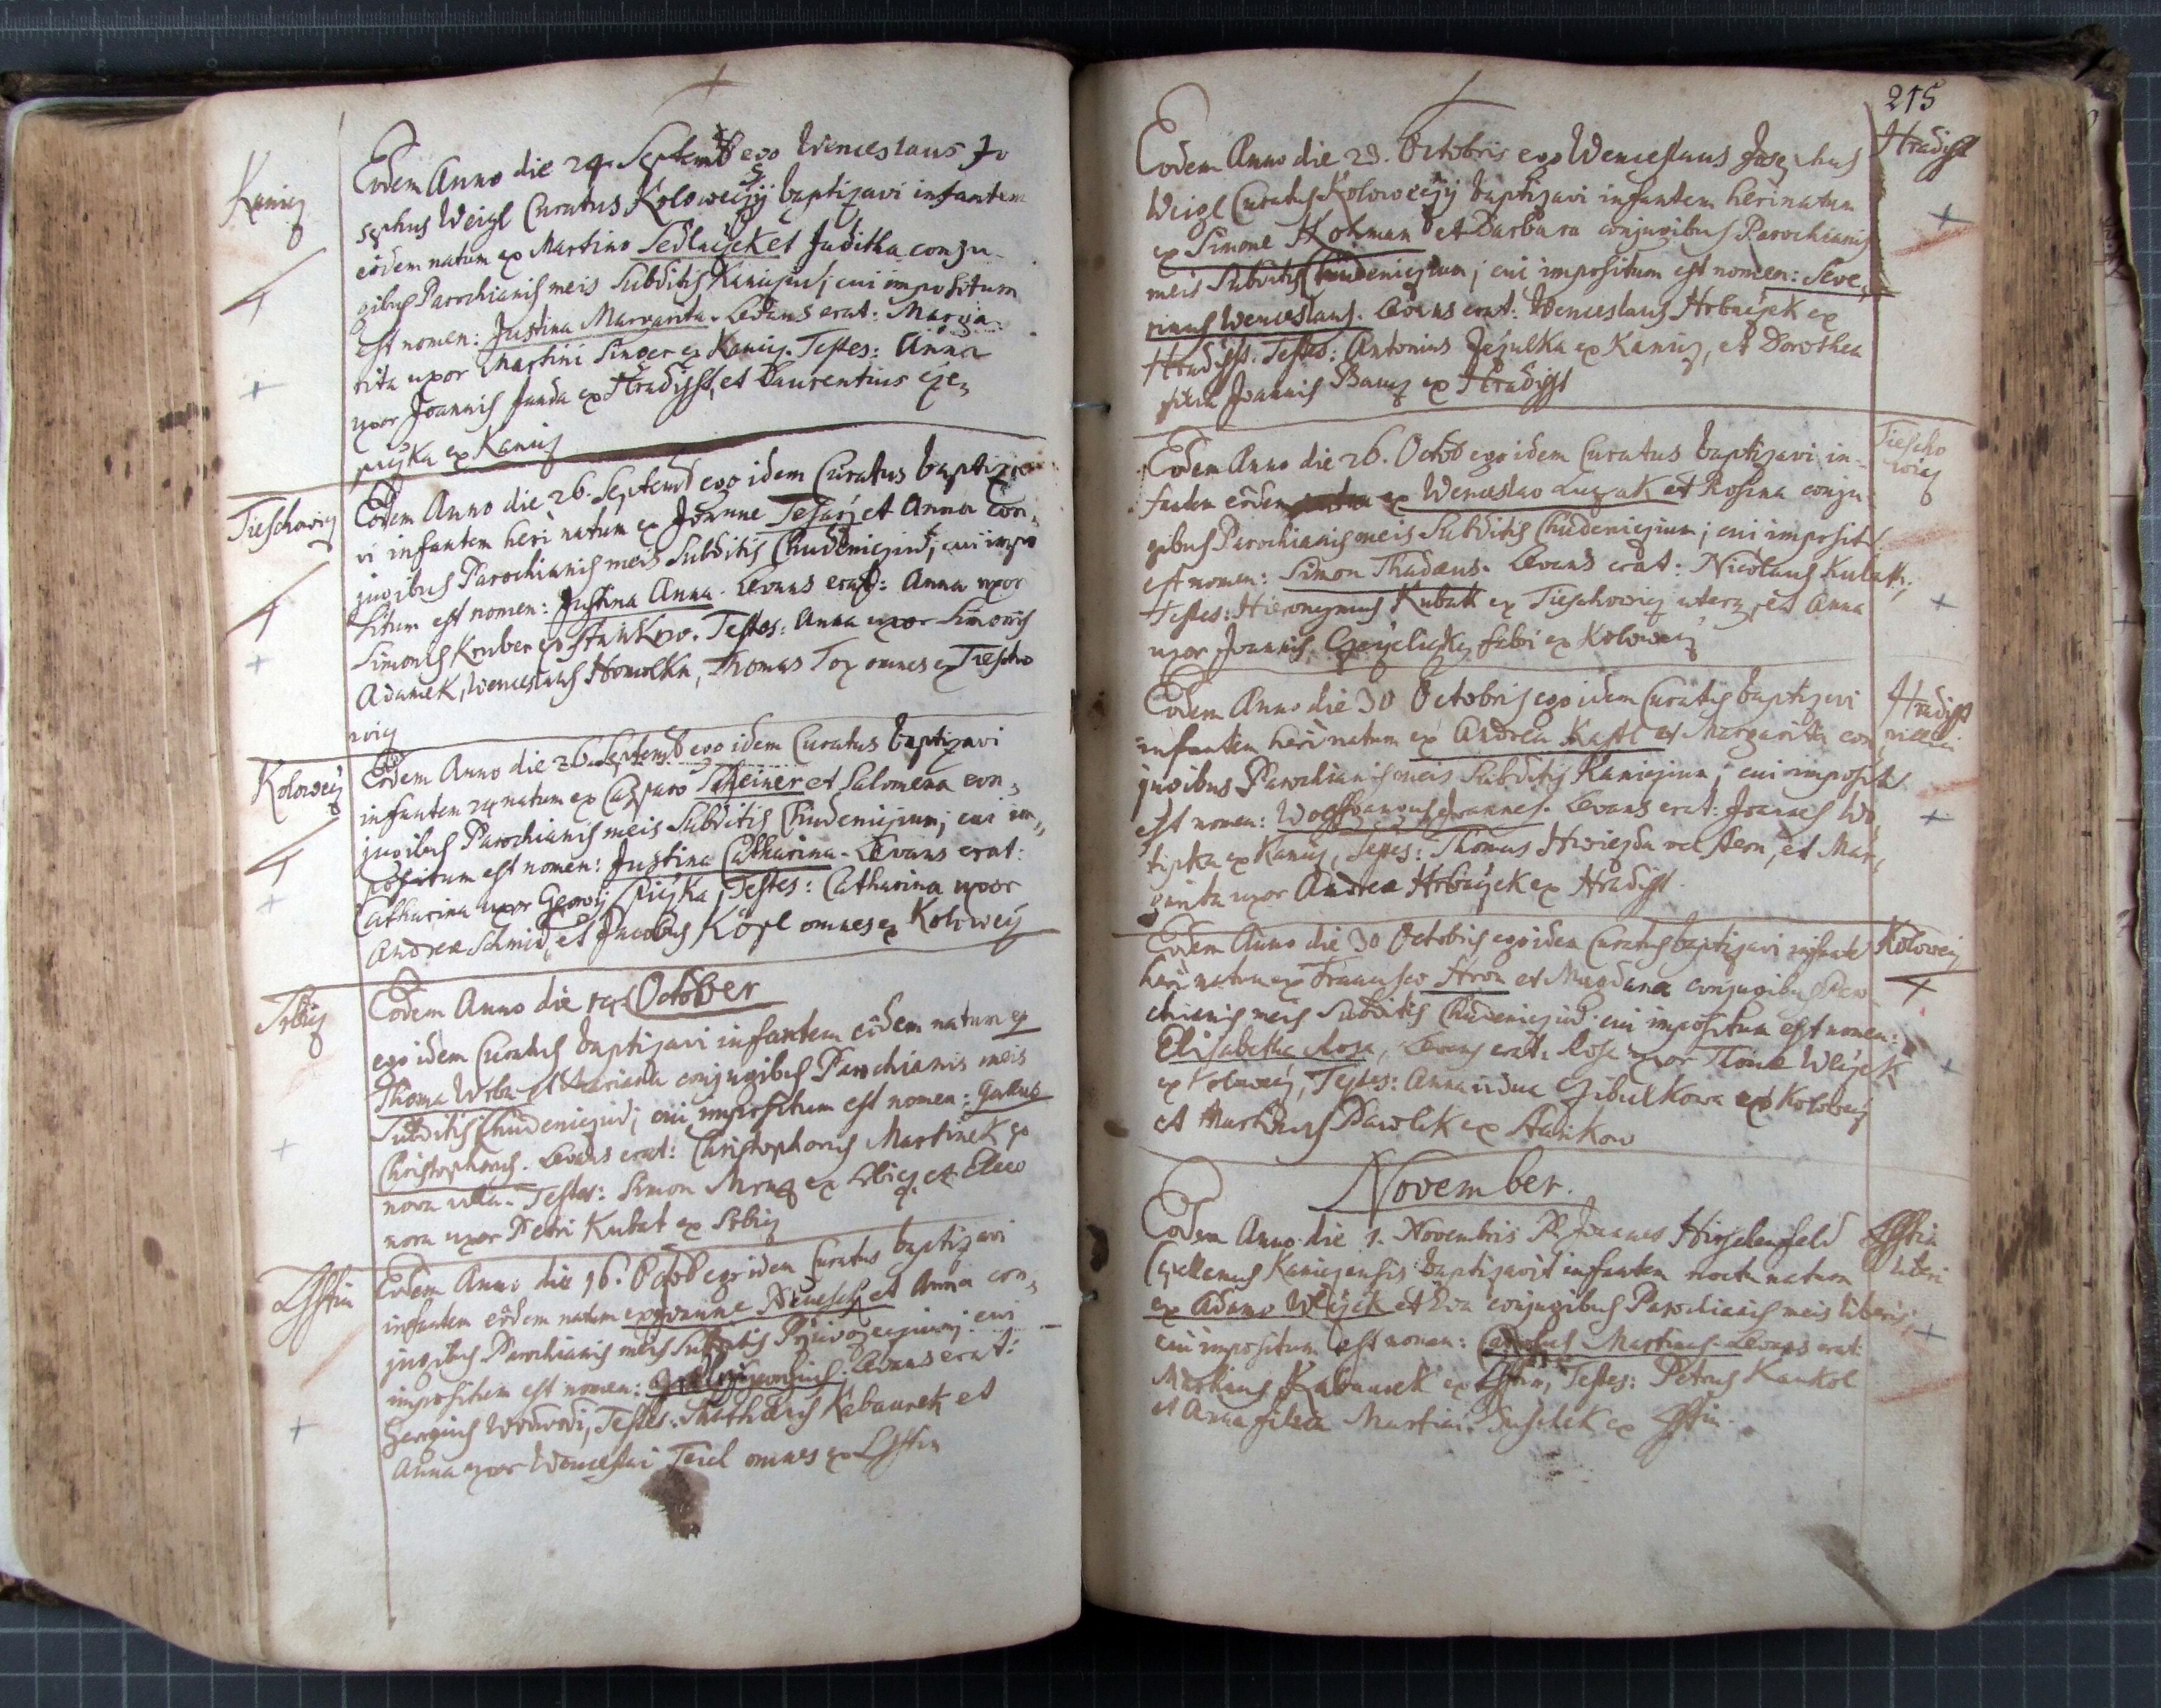 Kanicz
Eodem Anno die 24. Septemb ego Wenceslaus Jo
sephus Weigl Curatus Koloweijij baptizavi infantem
eodem natum ex Martino Sedlaijcket Juditha conju-
gibus Parochianis meis Subditis Kanicziu; cui impositum
est nomen: Justina Margarita. Levans erat: Marga
rita uxor Martini Singer ex Kanicz. Testes: Anna
uxor Joannis Janda ex Hradisst, et Laurentius
ex Kanicz
Tieschowicz
Eodem Anno die 26. Septemb ego idem Curatus baptiza
vi infantem heri natum ex Joanne Tesarz et Anna con,
jugibus Parochianis meis Subditis Chudenicziu; cui impo
situm est nomen: Justina Anna. Levans erat: Anna uxor
Simonis Kruber ex Stankow. Testes: Anna uxor Simonis
Adamek, Wenceslaus Homolka, Thomas Tox omnes ex Tiescho
wicz
Koloweij
Eodem Anno die 26. Septemb ego idem Curatus baptizavi
infantem 24 natum ex Casparo Scheiner et Salomena con,
jugibus Parochianis meis Subditis Chudeniczium; cui im,,
positum est nomen: Justina Catharina. Levans erat:
Catharina uxor Georgij Spicžka, Testes: Catharina uxor
Andreæ Schmid, et Jacobus Körl omnes ex Koloweij
Srbicz
Eodem Anno die 14 October
ego idem Curatus baptizavi infantem eodem natum ex
Thoma Wrba et Mariana conjugibus Parochianis meis
Subditis Chudenicziu; cui impositum est nomen: Gallus
Christophorus. Levans erat: Christophorus Martinek ex
nova villa. Testes: Simon Mraz ex Srbicz, et Eleo
nora uxor Petri Kubat ex Srbicz
Lsstin
Eodem Anno die 16. Octob ego idem Curatus baptizavi
infantem eodem natum ex Joanne et Anna con,
jugibus Parochianis meis Subditis cui
impositum est nomen: Levans erat:
Georgius Wodwodi, Testes: Mathæus Kabaurek et
Anna uxor Wenceslai Teicl omnes ex Lsstin
215
Hradisst
Eodem Anno die 23. Octobris ego Wenceslaus Josephus
Weigl Curatus Koloweijij baptizavi infantem heri natum
ex Simone Hohman et Barbara conjugibus Parochianis
meis Subditis Chudeniczium; cui impositum est nomen: Seve,
rinus Wenceslaus. Levans erat: Wenceslaus Hrbaijek ex
Hradisst. Testes: Antonius Jezulka ex Kanicz, et Dorothea
filia Joannis Baucz ex Hradisst
Tiescho
wicz
Eodem Anno die 26. Octob ego idem Curatus baptizavi in-
fantem eodem ex Wenceslao Luczak et Rosina conju
gibus Parochianis meis Subditis Chudenicziu; cui imposit
est nomen: Simon Thadæus. Levans erat: Nicolaus Kubatt,
Testes: Hieronymus Kubatt ex Tieschowicz uterq, et Anna
uxor Joannis fabri ex Koloweij
Hradisst
Eodem Anno die 30 Octobris ego idem Curatus baptizavi
infantem heri natum ex Andrea Kastl et Margarita con,
jugibus Parochianis meis Subditis Kaniczium; cui imposit
est nomen: Wolffgangus Joannes. Levans erat: Joannes Wo
tipka ex Kanicz, Testes: Thomas Hwiezda vel Stern, et Mar,
garita uxor Andreæ Hrbaijek ex Hradisst.
Koloweij
Eodem Anno die 30 Octobris ego idem Curatus baptizavi infante
heri natum ex Francisco Stron et Magdana conjugibus Paro
chianis meis Subditis Chudenicziu cui impositum est nomen:
Elisabetha Rosa, Levans erat: Rosa uxor Thomæ Wlijek
ex Koloweij, Testes: Anna vidua Czibulkowa ex Koloweij
et Martinus Pawlik ex Stankow
November.
Lsstin
liberi
Eodem Anno die 1. Novembris P. Joannes Hirschenfeld
Capellanus Kaniczensis baptizavit infantem nocte natum
ex Adamo Wlijek et Eva conjugibus Parochianis meis liberis,
cui impositum est nomen: Carolus Martinus. Levans erat:
Martinus Kabaurek ex Lsstin, Testes: Petrus Kaukol
et Anna filia Martini Buschek ex Lsstin.